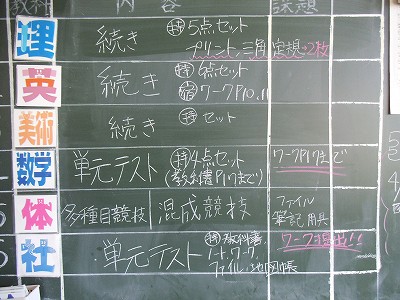 教科 内容 課題
理 続き ㊕5点セット
プリント、三角定規2枚
英 続き ㊕6点セット
㊟ワークP10,11
美術 続き ㊕セット
数学 単元テスト ㊕4点セット
(教科書P17まで) ワークP17まで
体 多種目競技 混成競技 ファイル
筆記用具
社 単元テスト ㊕教科書、
ノート、ワーク、
ファイル、地図帳 ワーク提出!!